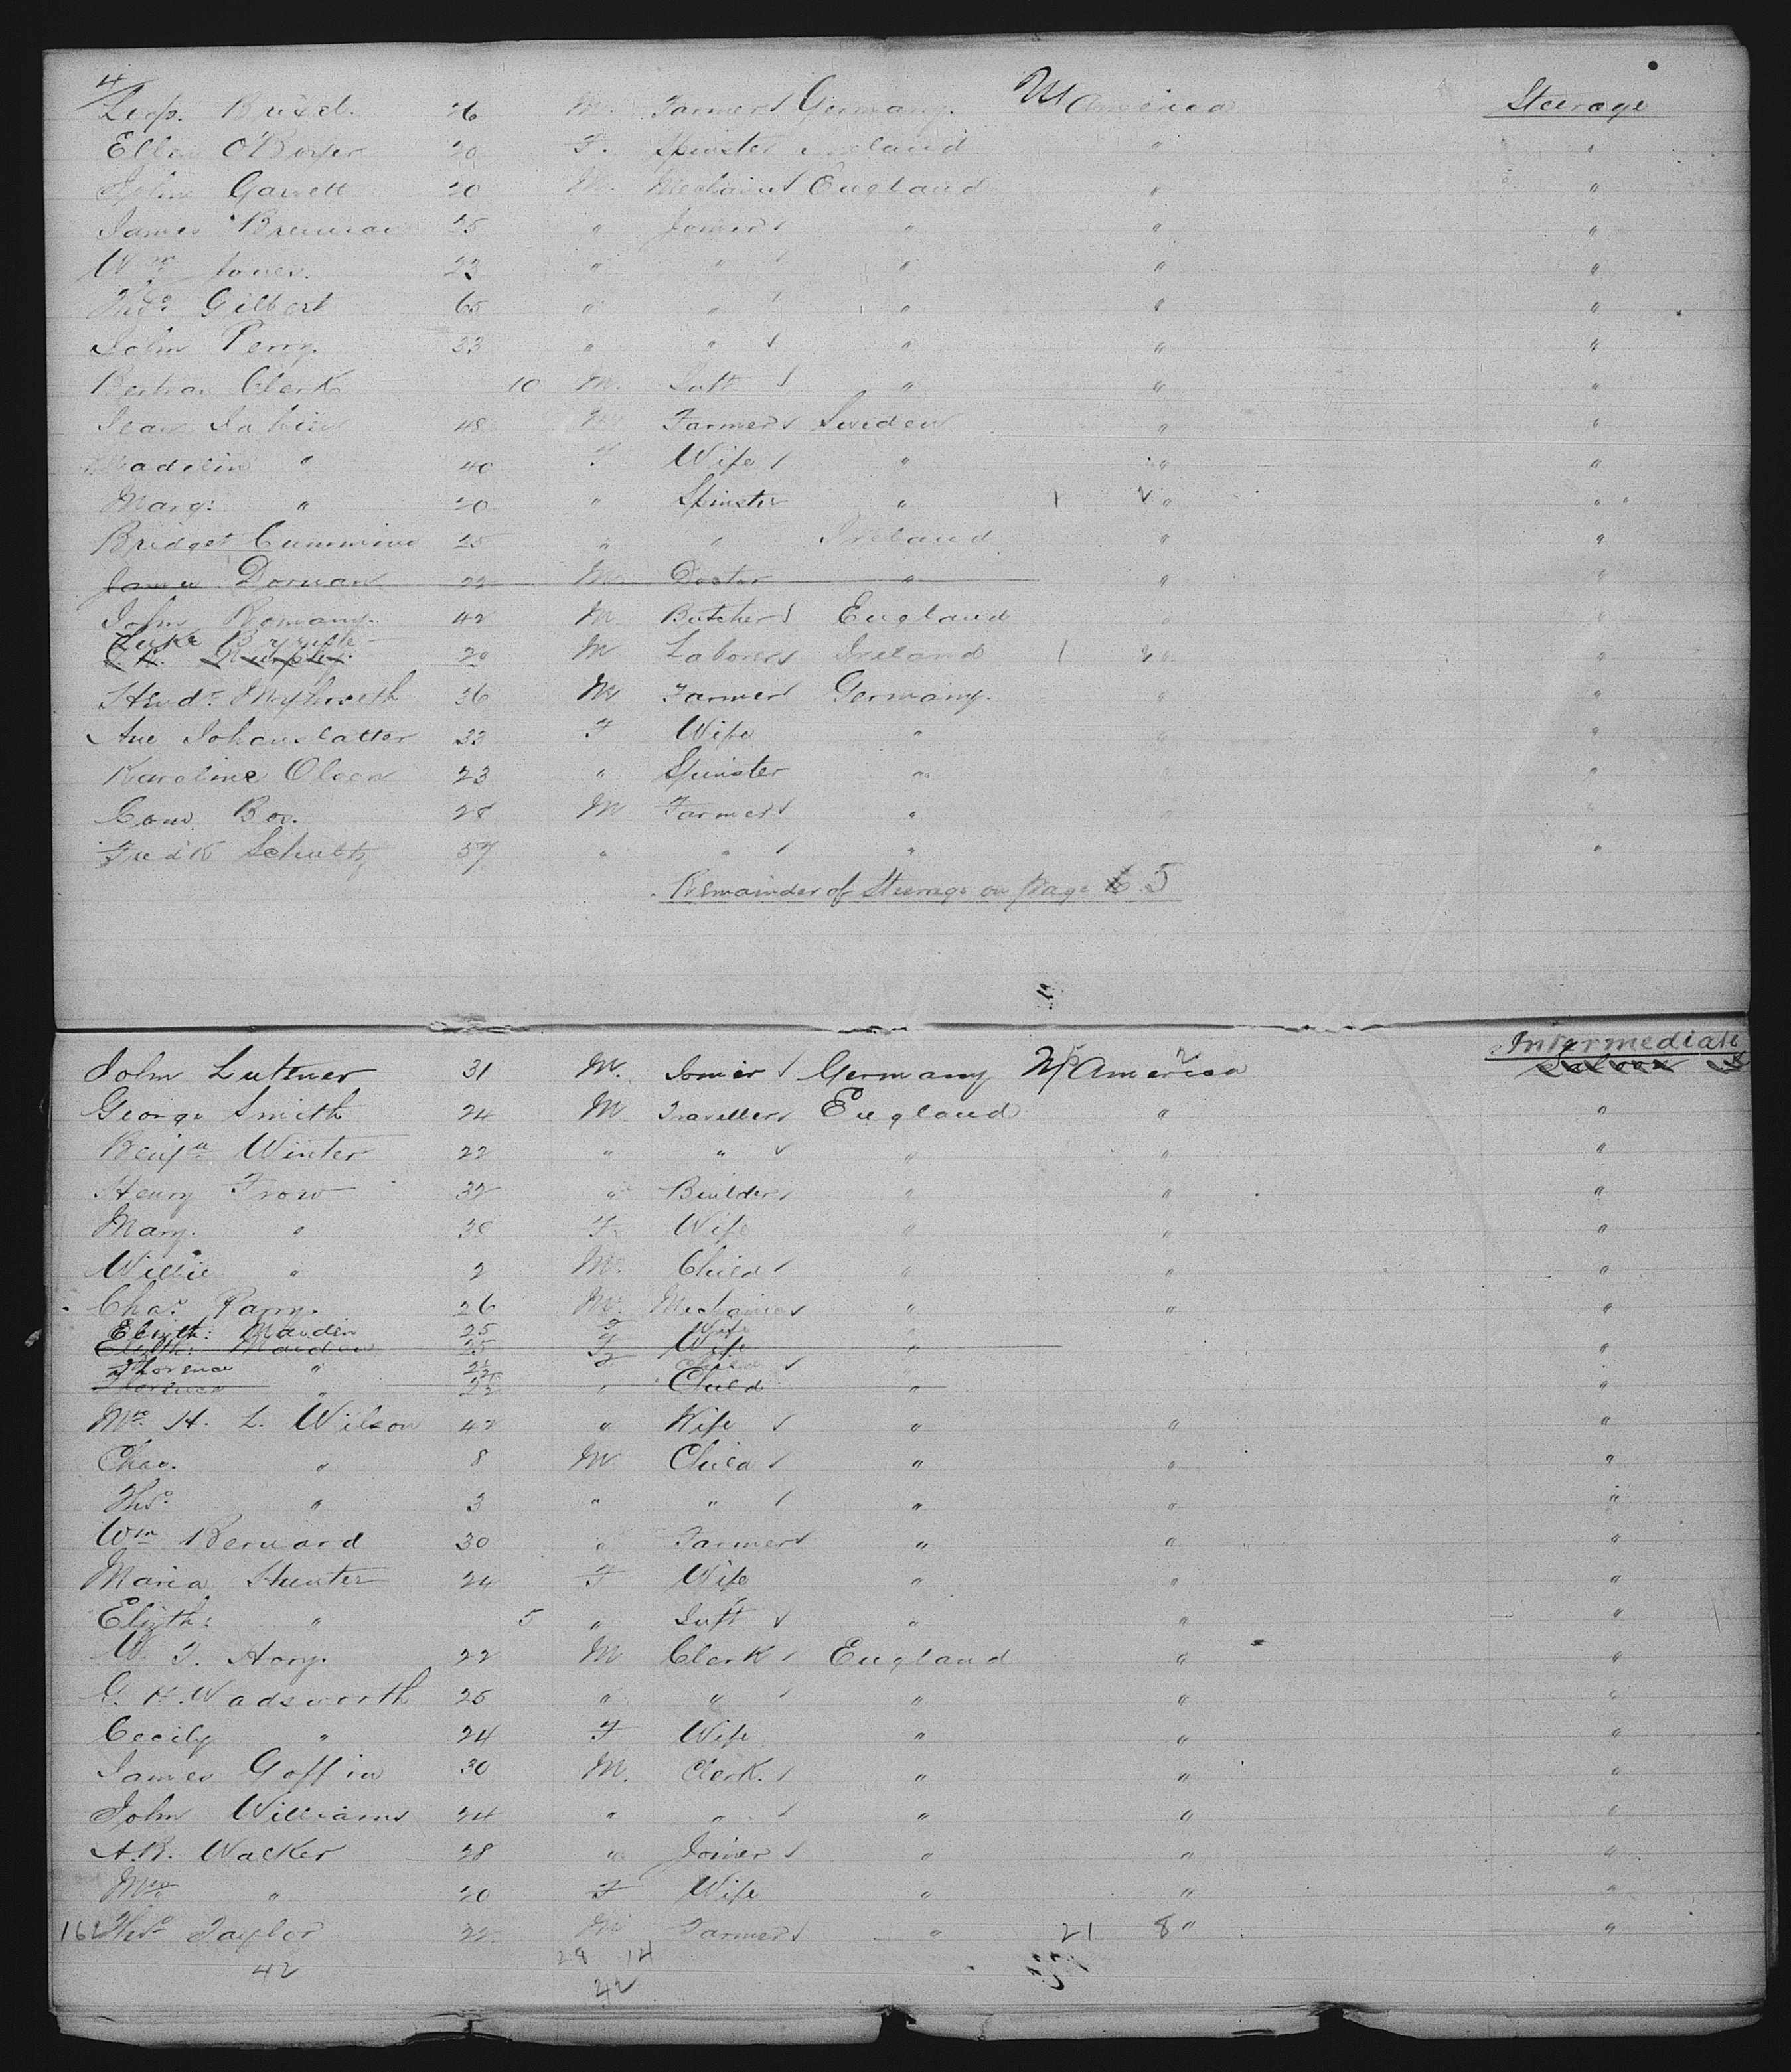 4
Leop. 26 M. Farmer Germany. U America Steerage
Ellen O'Boyer 20 F. Spinster Ireland " "
John Garrett 20 M. Mechanic England " "
James Brennan 25 " Joiner " " "
Wm Jones. 23 " " " " "
Thos Gilbert 65 " " " " "
John Perry. 23 " " " " "
Bertran Clerk 10 M. Inft " " "
Jean 48 M Farmer Sweden " "
Madelin " 40 F Wife " " "
Marg: " 20 " Spinster " 1 " "
Bridget Cummine 25 " " Ireland " "
James Dornan 22 M Doctor " " "
John Romany. 42 M Butcher England " "
Luke
20 M Laborer Ireland 1 " "
36 M Farmer Germany. " "
Ane Johanslatter 33 F Wife " " "
Karoline Olsen 23 " Spinster " " "
Conr. Bov. 28 M Farmer " " "
Fredk Schultz 57 " " " "
Remainder of Steerage on page 6. 5
Intermediate
John Luttner 31 M. Joiner Germany U America Saloon
George Smith 24 M Traveller England " "
Benjn Winter 22 " " " " "
Henry Trow 32 " Builder " " "
Mary. " 38 F Wife " " "
Willie " 2 M. Child " " "
Chas. Parry. 26 M. Mechanic " " "
Elizth: Marden 25 F Wife
Elizth: Marden 25 F Wife " "
Florence " 2½ Child
Florence " 2½ " Child " "
Mrs. H. L. Wilson 42 " Wife " " "
Chas. " 8 M Child " " "
Thos. " 3 " " " " "
Wm Bernard 30 " Farmer " " "
Maria Hunter 24 F Wife " " "
Elizth: " 5 " Inft " " "
W. T. Hory. 22 M Clerk England " "
G. H. Wadsworth 25 " " " " "
Cecily " 24 F Wife " " "
James Goffin 30 M. Clerk. " " "
John Williams 24 " " " " "
A.R. Walker 28 " Joiner " " "
Mrs " 20 F Wife " " "
162 Thos Taylor 22 M Farmer " 21 8 " "
42 28 14
42